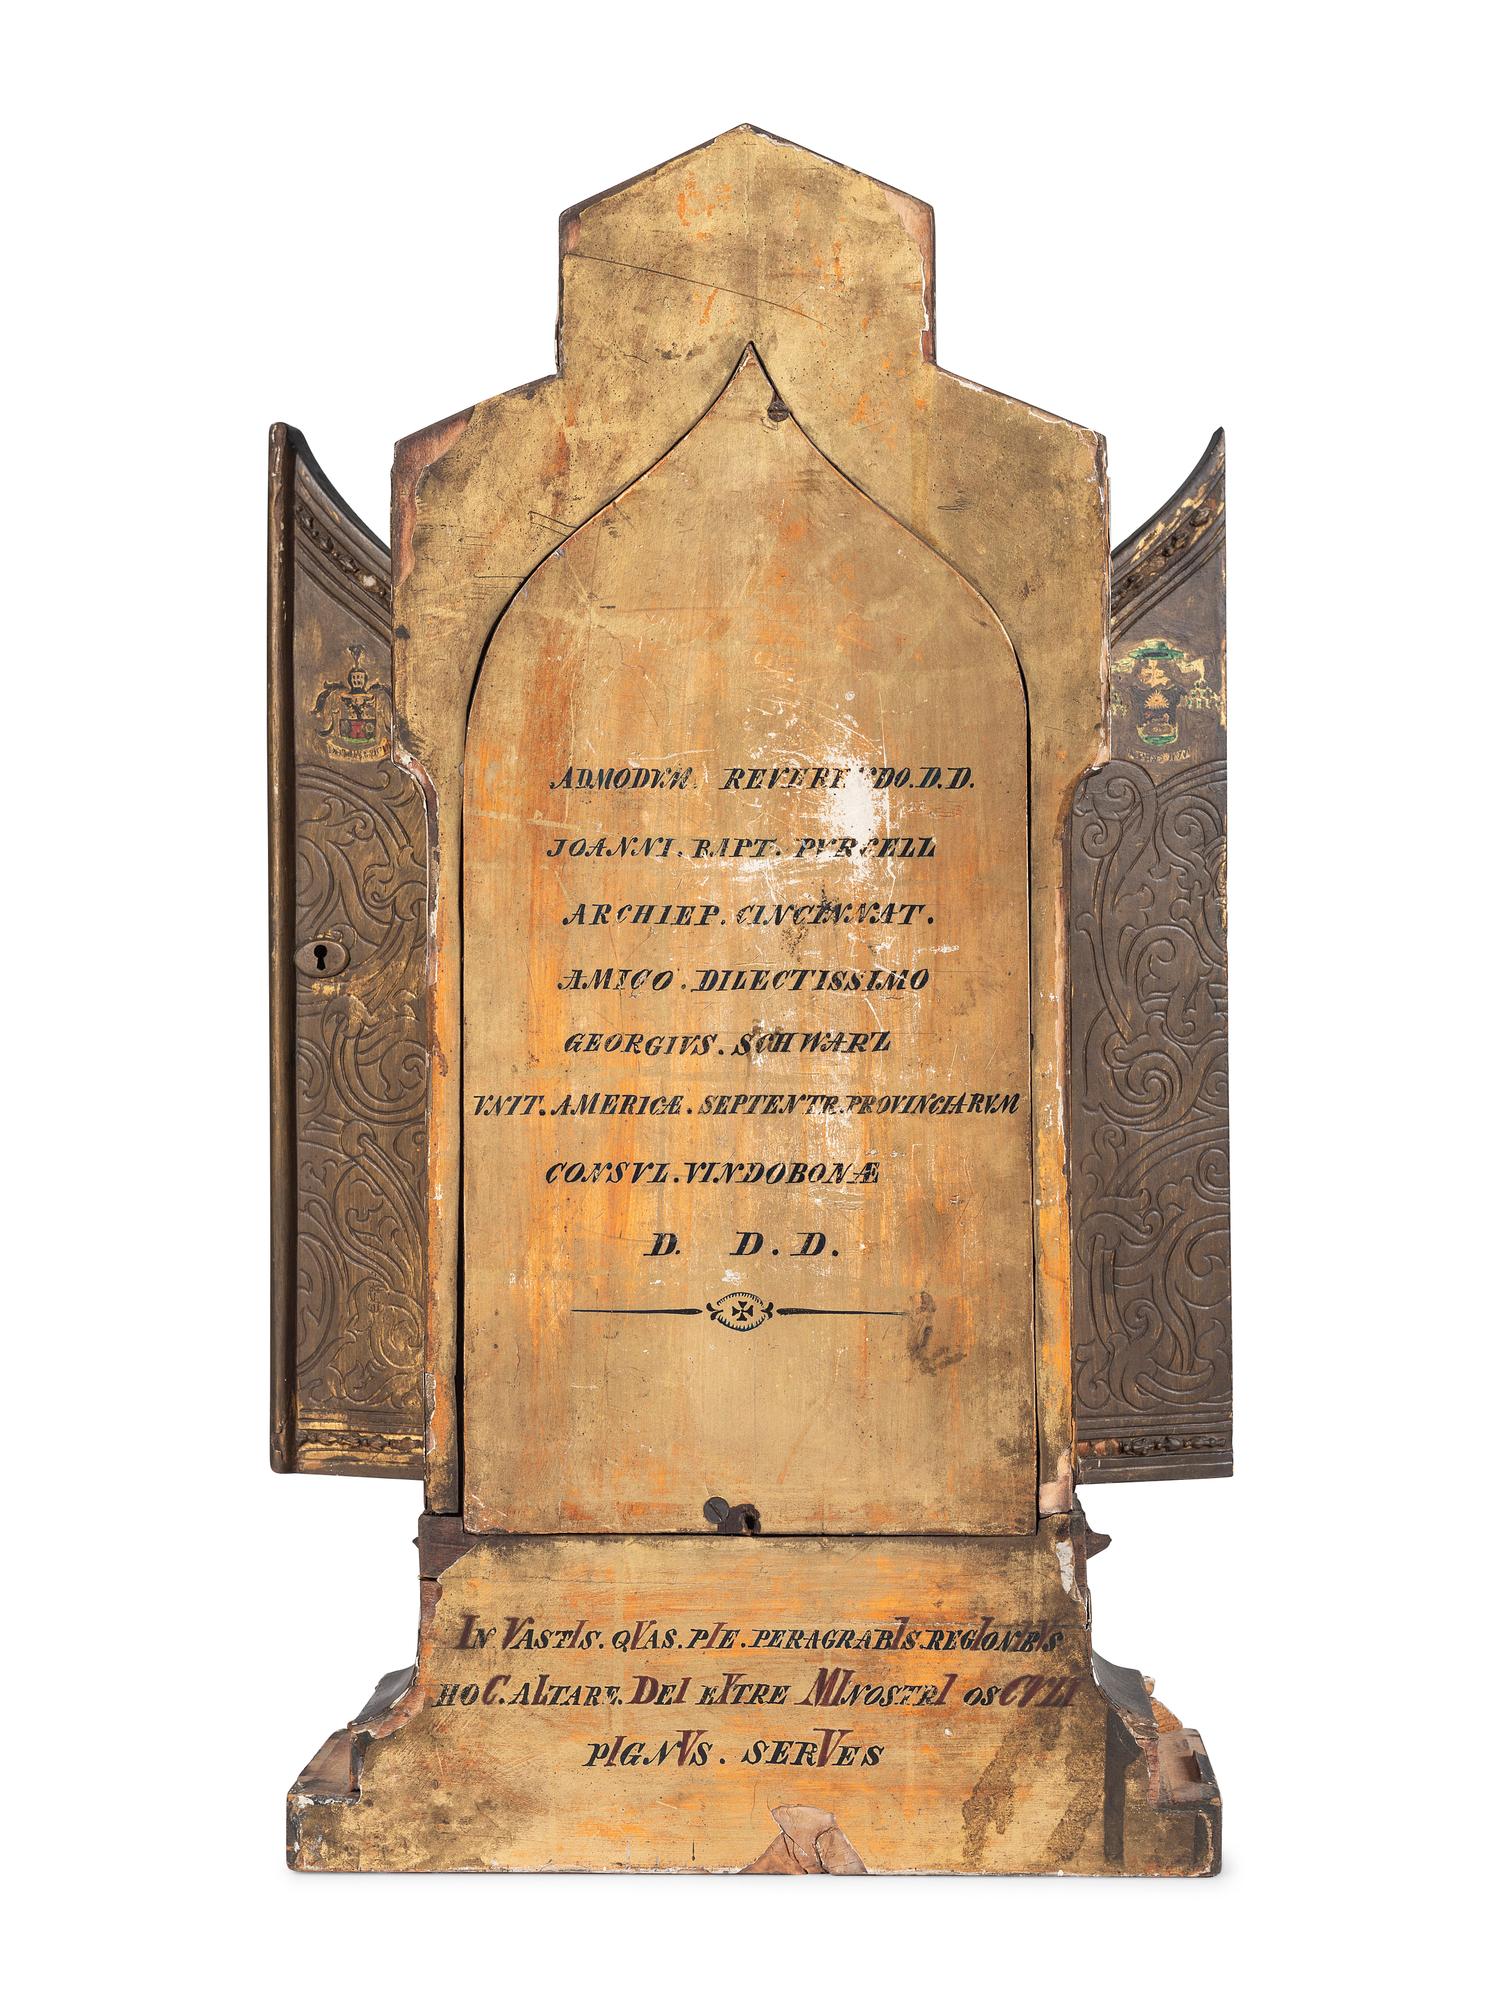 ADMODVM. REVERENDO.D.D.
JOANNI. BAPT. PVRCELL
ARCHIEP. CINCINNAT.
AMICO. DILECTISSIMO
GEORGIVS. SCHWARZ
VNIT. AMERICÆ. SEPTENTR. PROVINCIARVM
CONSVL. VINDOBONÆ
D. D. D.
IN VASTIS. QVAS. PIE. PERAGRABIS. REGIONIBVS
HOC. ALTARE. DEI EXTREMI NOSTRI OSCVLI
PIGNVS. SERVES